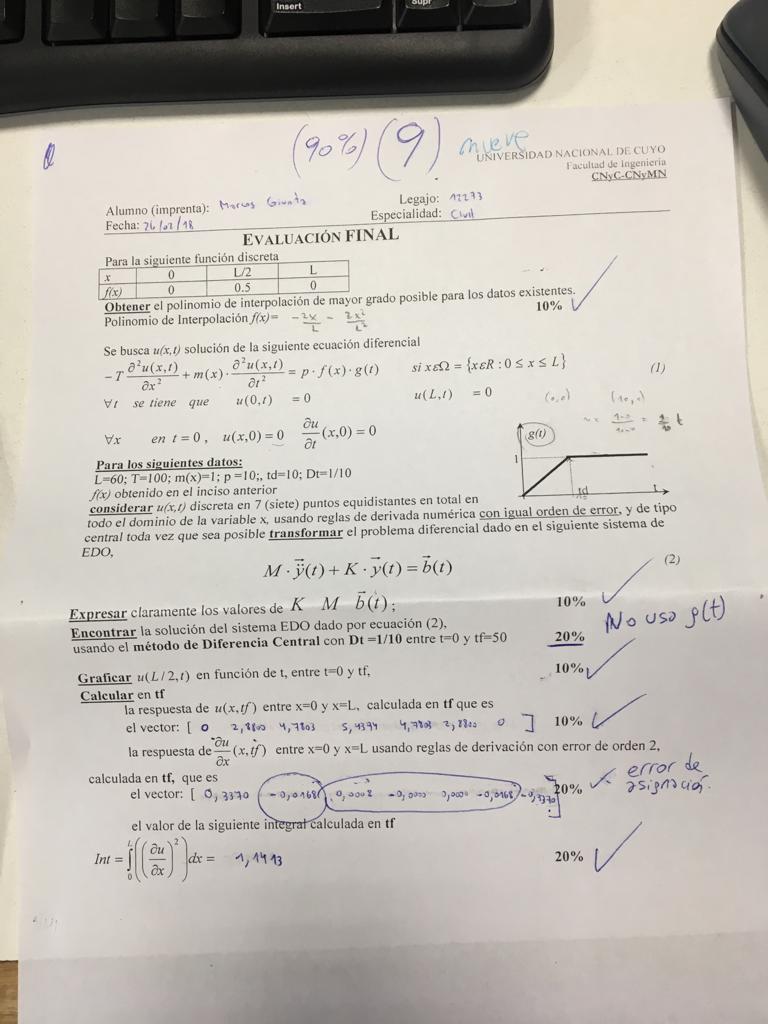 Insert
Supr
(90%) (9) nueve
UNIVERSIDAD NACIONAL DE CUYO
Facultad de Ingeniería
CNyC-CNyMN
Alumno (imprenta): Marcos Giunta
Legajo: 12273
Fecha: 26/02/18
Especialidad: Civil
EVALUACIÓN FINAL
Para la siguiente función discreta
x 0 L/2 L
f(x) 0 0.5 0
Obtener el polinomio de interpolación de mayor grado posible para los datos existentes.
Polinomio de Interpolación f(x)= -2x/L - 2x²/L²
10%
Se busca u(x,t) solución de la siguiente ecuación diferencial
-T ∂²u(x,t)/∂x² + m(x)·∂²u(x,t)/∂t² = p·f(x)·g(t) si xεΩ = {xεR : 0 ≤ x ≤ L} (1)
∀t se tiene que u(0,t) = 0 u(L,t) = 0
(0,0) (10,1)
∀x en t = 0, u(x,0) = 0 ∂u/∂t (x,0) = 0
g(t)
1
td
t
Para los siguientes datos:
L=60; T=100; m(x)=1; p =10;, td=10; Dt=1/10
f(x) obtenido en el inciso anterior
considerar u(x,t) discreta en 7 (siete) puntos equidistantes en total en
todo el dominio de la variable x, usando reglas de derivada numérica con igual orden de error, y de tipo
central toda vez que sea posible transformar el problema diferencial dado en el siguiente sistema de
EDO,
M·ÿ(t) + K·y(t) = b(t) (2)
Expresar claramente los valores de K M b(t); 10%
No uso g(t)
Encontrar la solución del sistema EDO dado por ecuación (2),
usando el método de Diferencia Central con Dt =1/10 entre t=0 y tf=50 20%
Graficar u(L/2,t) en función de t, entre t=0 y tf, 10%
Calcular en tf
la respuesta de u(x,tf) entre x=0 y x=L, calculada en tf que es
el vector: [ 0 2,8800 4,7803 5,4394 4,7803 2,8800 0 ] 10%
la respuesta de ∂u/∂x (x,tf) entre x=0 y x=L usando reglas de derivación con error de orden 2,
calculada en tf, que es
el vector: [ 0,3370 -0,0168 0,0002 -0,0000 0,0000 -0,0168 -0,3370 ] 20%
error de asignación.
el valor de la siguiente integral calculada en tf
Int = ∫₀ᴸ ((∂u/∂x)²) dx = 1,1413 20%